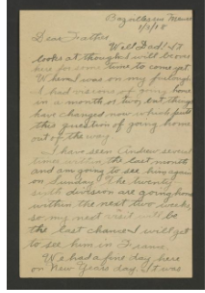 Dear Father
Well Dad! It
looks as though I will be on
here for some time to come yet
When I was on my furlough
I had visions of going home
in a month or two, but things
have changed now which put
this question of going home
out of the way.
I have seen Andrew several
times within the last month
and am going to see him again
on Sunday. The twenty
sixth division are going home
within the next two weeks
so my next visit will be
the last chance I will get
to see him in France.
We had a fine day here
on New Years day. It was